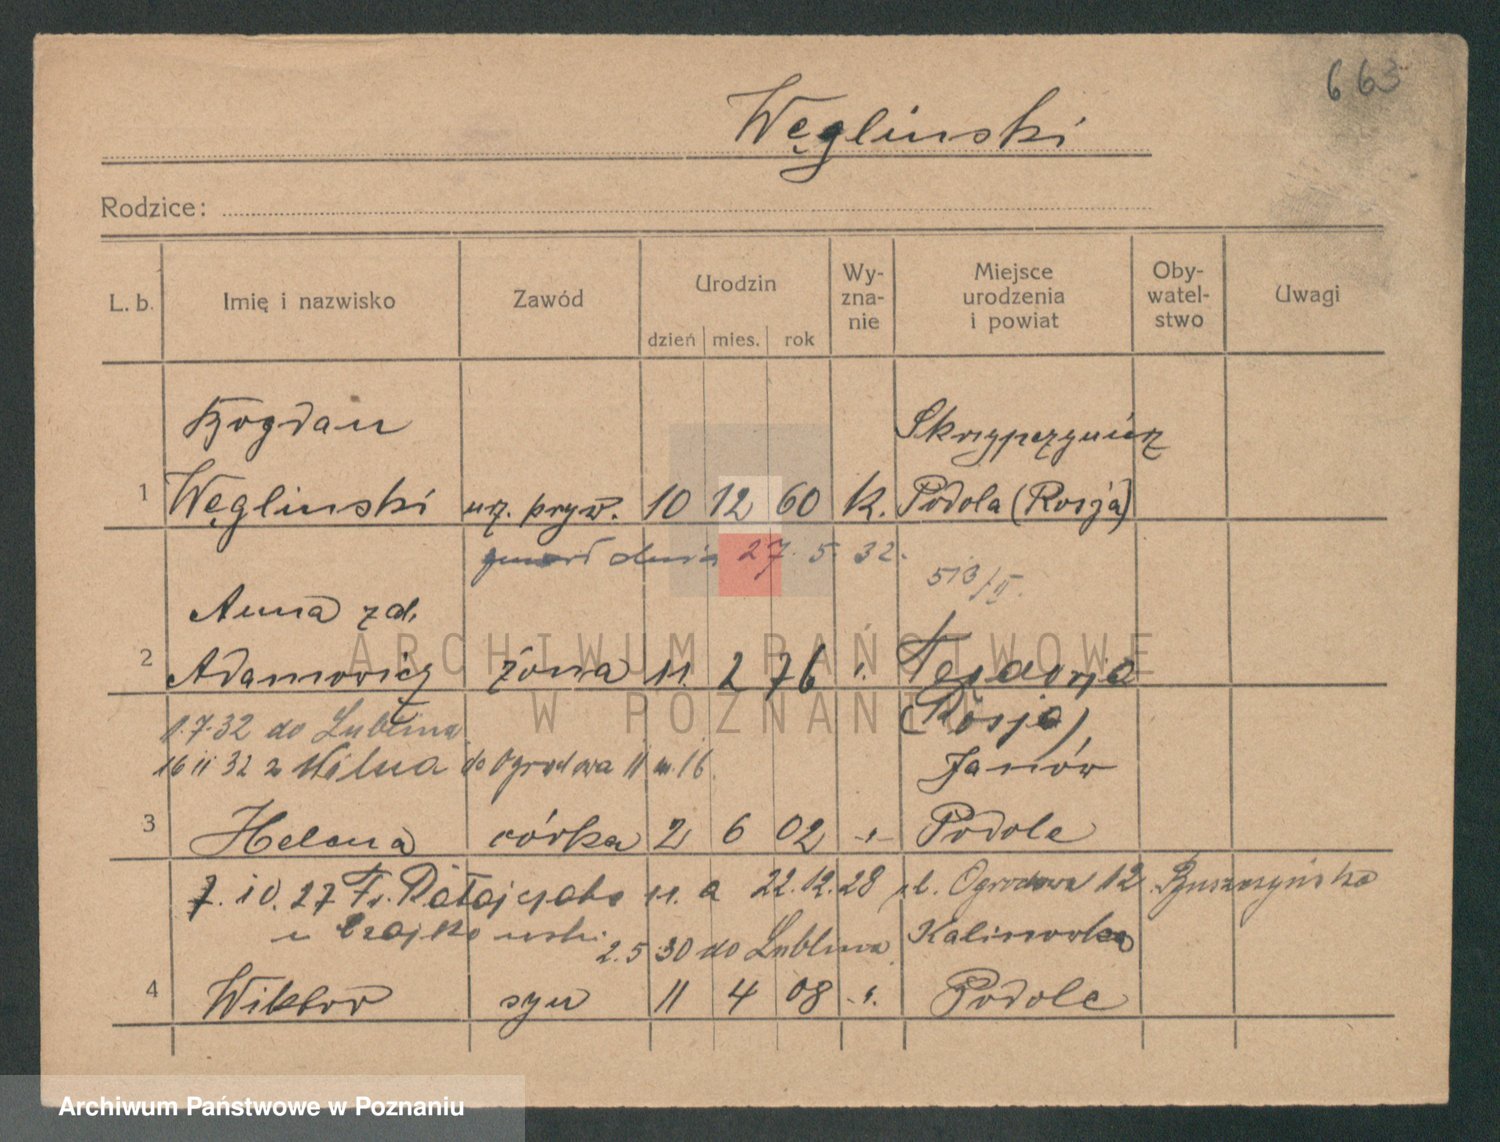 663
Węglinski
Rodzice:
L. b. Imię i nazwisko Zawód Urodzin dzień mies. rok Wy-zna-nie Miejsce urodzenia i powiat Oby-watel-stwo Uwagi
Bogdan
1 Węglinski urz. pryw. 10 12 60 k. Podola (Rosja)
zmarł dnia 27. 5. 32. 513/II.
Anna zd.
2 Adamowicz żona 11 2 76
(Rosja)
1.7.32 do Lublina
16 11 32 z Wilna do Ogrodowa 11 m. 16. Janów
3 Helena córka 2 6 02 -"- Podole
7. 10. 27 Fr. Ratajczaka 11. a 22.12.28 ul. Ogrodowa 12
u Czajkowski 2.5 30 do Lublina Kalinowka
4 Wiktor syn 11 4 08 -"- Podole
ARCHIWUM PAŃSTWOWE
W POZNANIU
Archiwum Państwowe w Poznaniu